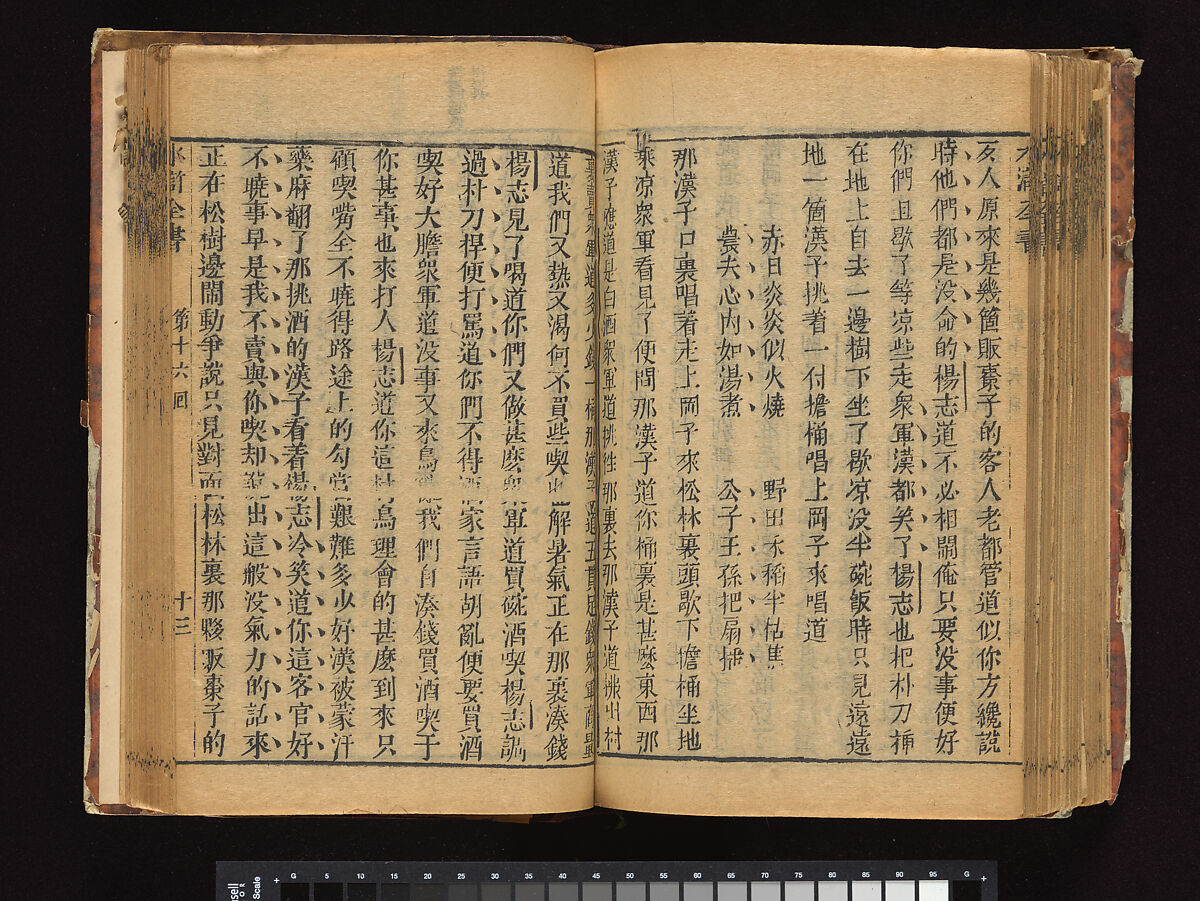 水滸全書
歹人原來是幾箇販棗子的客人老都管道似你方纔說
時他們都是没命的楊志道不必相鬧俺只要没事便好
你們且歇了等凉些走衆軍漢都笑了楊志也把朴刀揷
在地上自去一邊樹下坐了歇凉没半碗飯時只見遠遠
地一箇漢子挑着一付擔桶唱上岡子來唱道
赤日炎炎似火燒 野田禾稻半枯焦
農夫心内如湯煮 公子王孫把扇搖
那漢子口裏唱着走上岡子來松林裏頭歇下擔桶坐地
乘凉衆軍看見了便問那漢子道你桶裏是甚麽東西那
漢子應道是白酒衆軍道挑往那裏去那漢子道挑出村
裏賣衆軍道多少錢一桶那漢子道五貫足錢衆軍商量
道我們又熱又渴何不買些喫也解暑氣正在那裏湊錢
楊志見了喝道你們又做甚麽衆軍道買碗酒喫楊志調
過朴刀捍便打罵道你們不得洒家言語胡亂便要買酒
喫好大膽衆軍道没事又來鳥亂我們自湊錢買酒喫干
你甚事也來打人楊志道你這村鳥理會的甚麽到來只
顧喫嘴全不曉得路途上的勾當艱難多少好漢被蒙汗
藥麻翻了那挑酒的漢子看着楊志冷笑道你這客官好
不曉事早是我不賣與你喫却說出這般没氣力的話來
正在松樹邊鬧動爭說只見對面松林裏那夥販棗子的
水滸全書 第十六回 十三
G 5 10 15 20 30 40 50 60 65 70 75 80 85 90 95 G
Scale